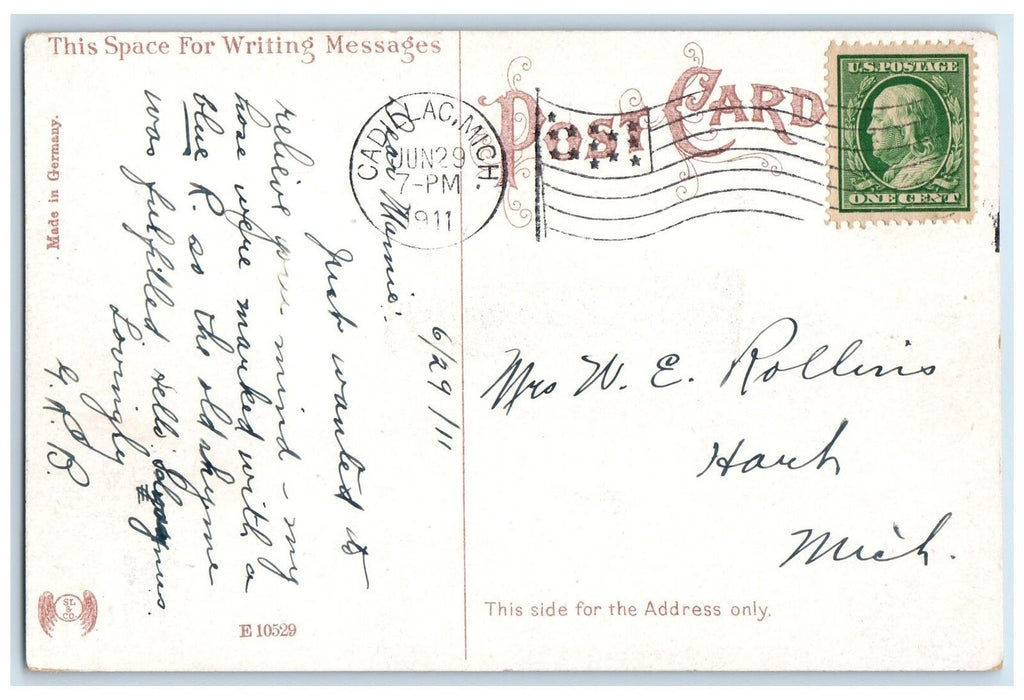 This Space For Writing Messages
POST CARD
U.S. POSTAGE
ONE CENT
CADILLAC, MICH.
JUN 29
7-PM
1911
Made in Germany.
6/29/11
Dear Mamie:
Just wanted to
relieve your mind - my
hose were marked with a
blue R. so the old rhyme
was fulfilled tells
Lovingly
G. R. B.
Mrs W. E. Rollins
Hart
Mich.
This side for the Address only.
SL & CO
E 10529